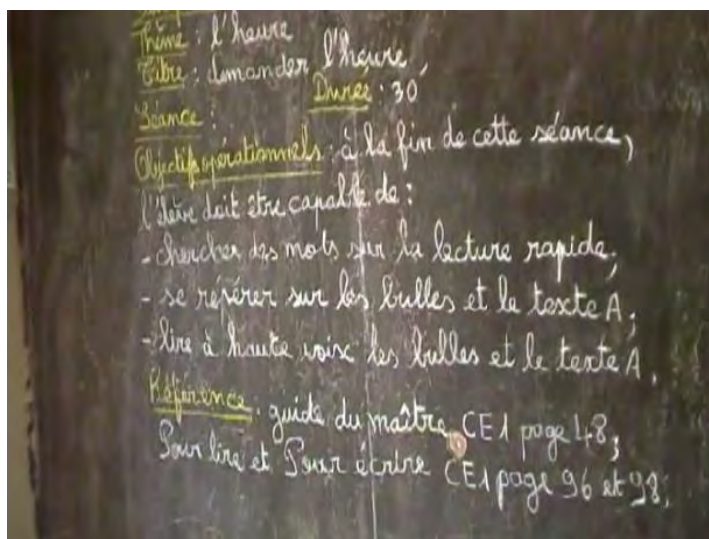 Thème : l'heure
Titre : demander l'heure,
Durée : 30
Séance :
Objectifs opérationnels : à la fin de cette séance,
l'élève doit être capable de :
- chercher des mots sur la lecture rapide ;
- se répérer sur les bulles et le texte A ;
- lire à haute voix les bulles et le texte A.
Référence : guide du maître CE1 page 48 ;
Pour lire et Pour écrire CE1 page 96 et 98.